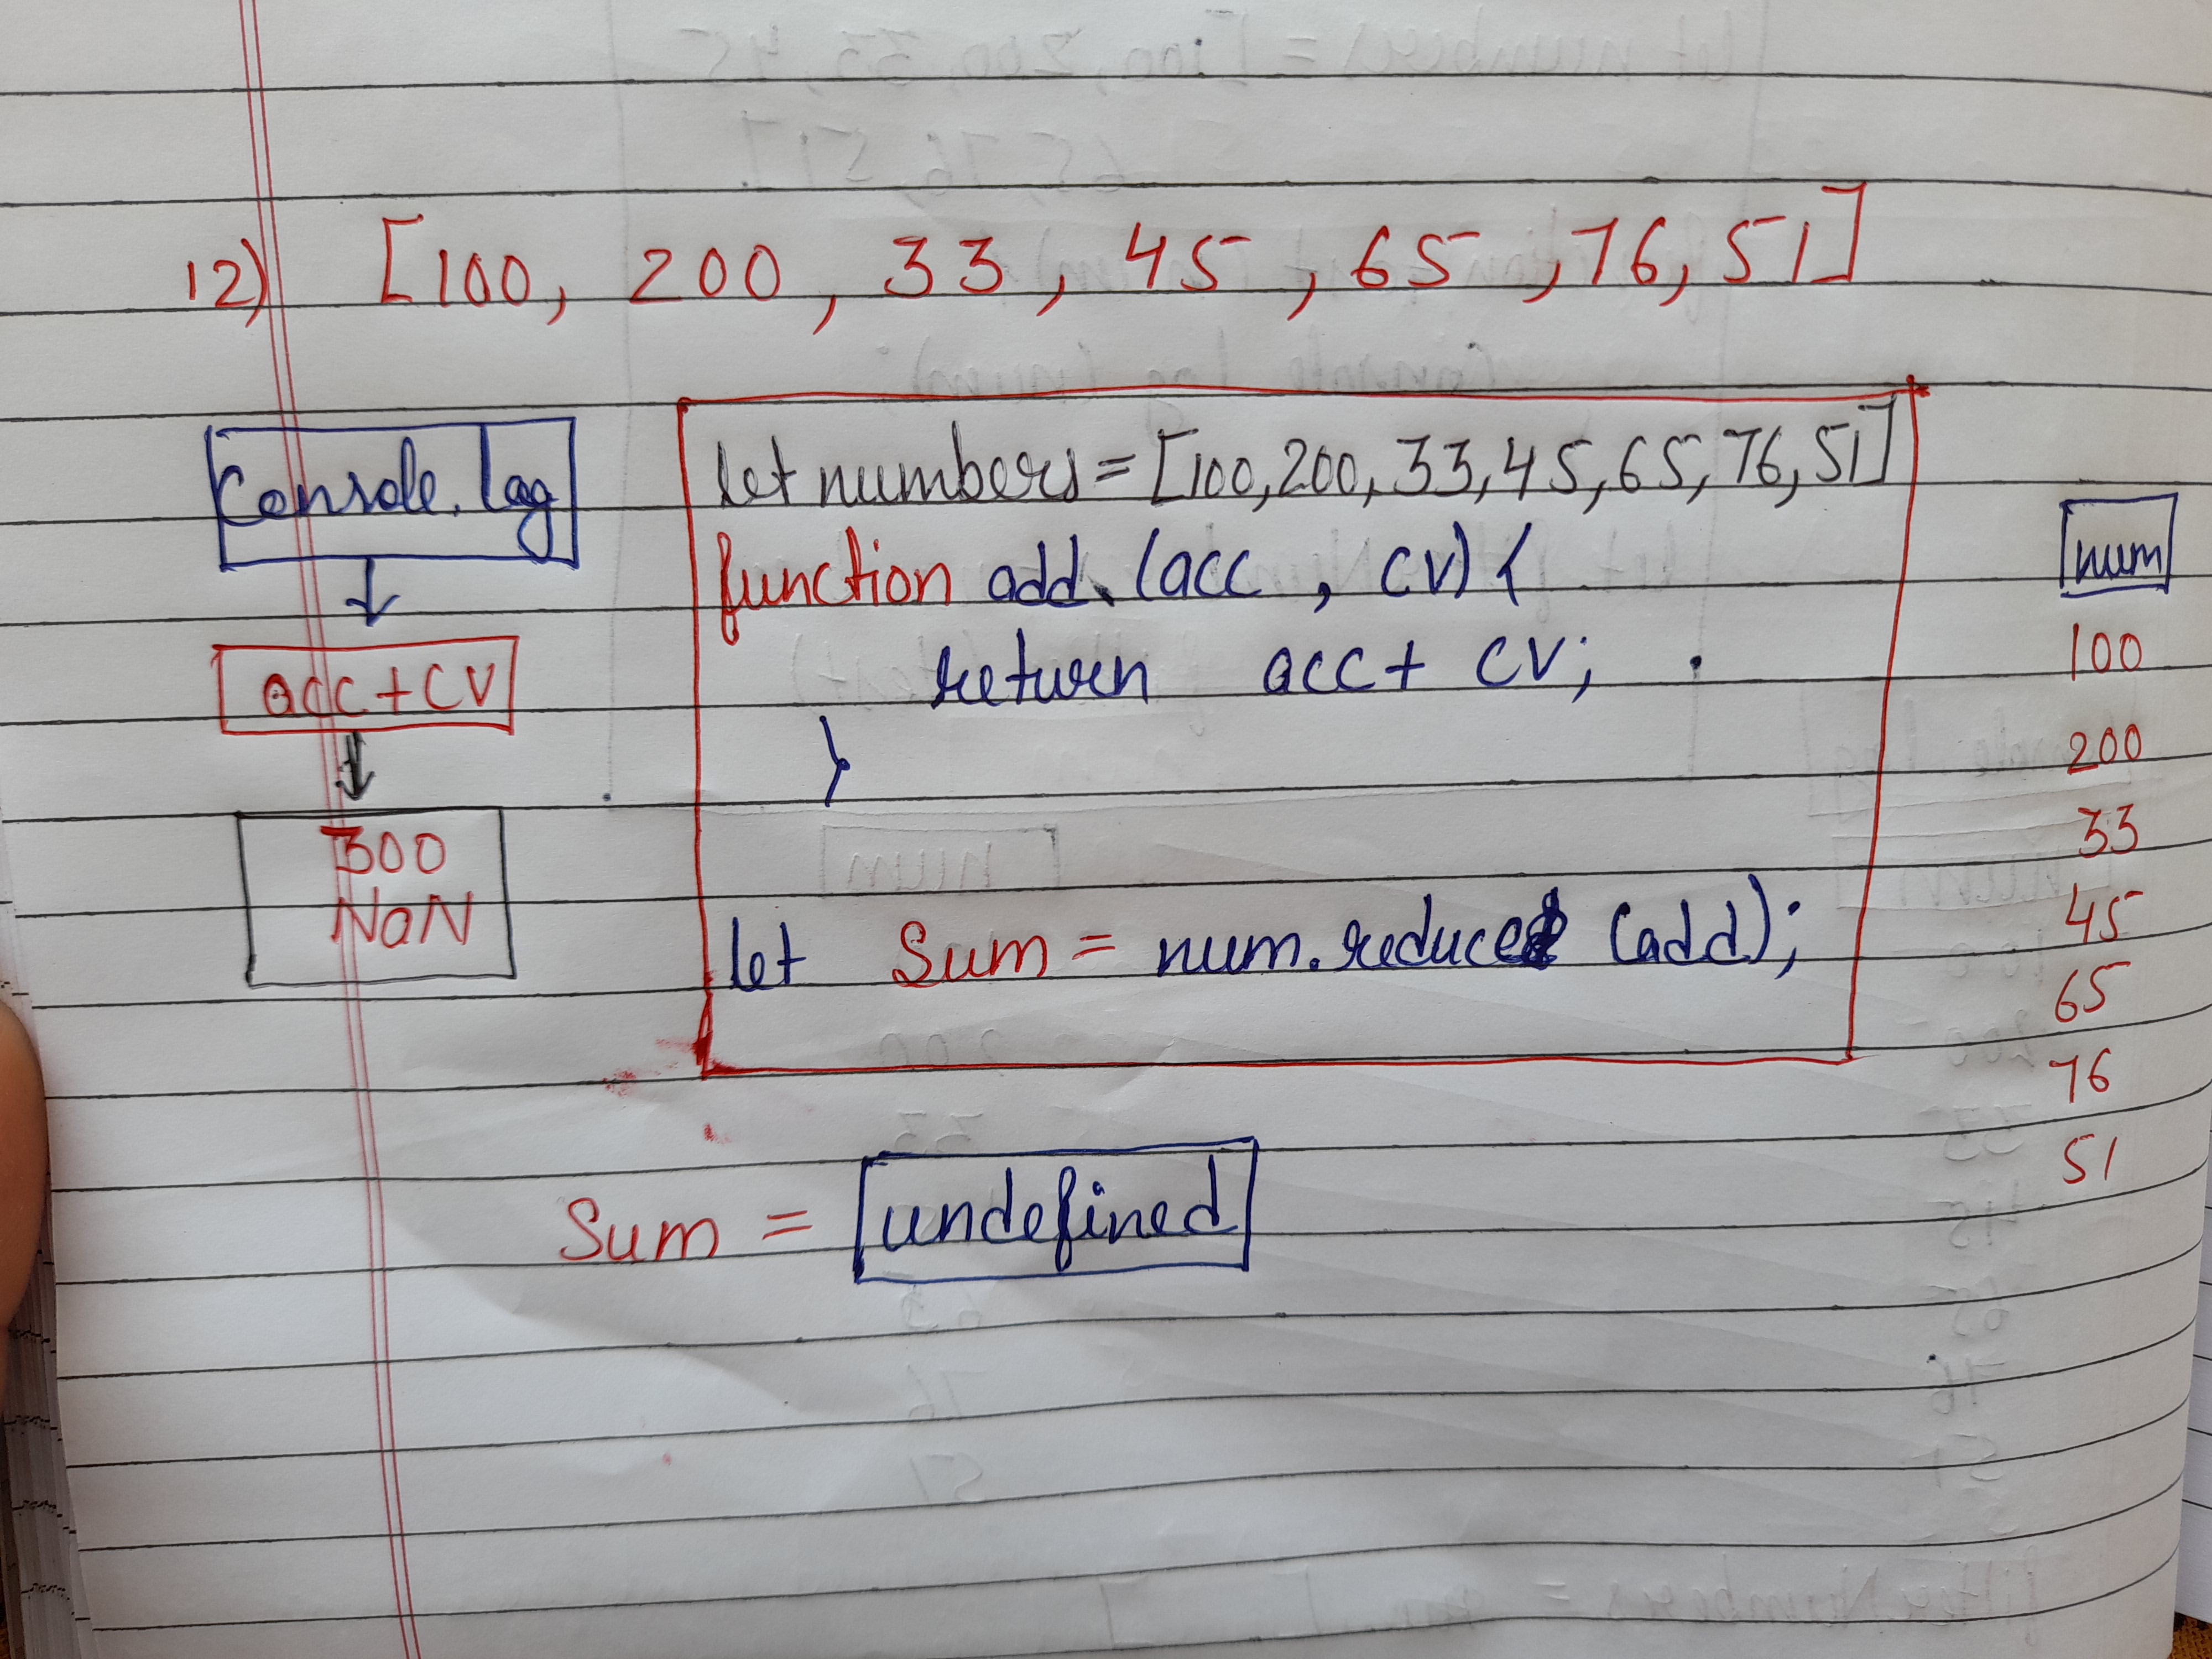 12) [100, 200, 33, 45, 65, 76, 51]
Console.log
acc+cv
300
NaN
let numbers = [100,200,33,45,65,76,51]
function add (acc, cv) {
return acc + cv;
}
let Sum = num.reduce (add);
Sum = undefined
num
100
200
33
45
65
76
51